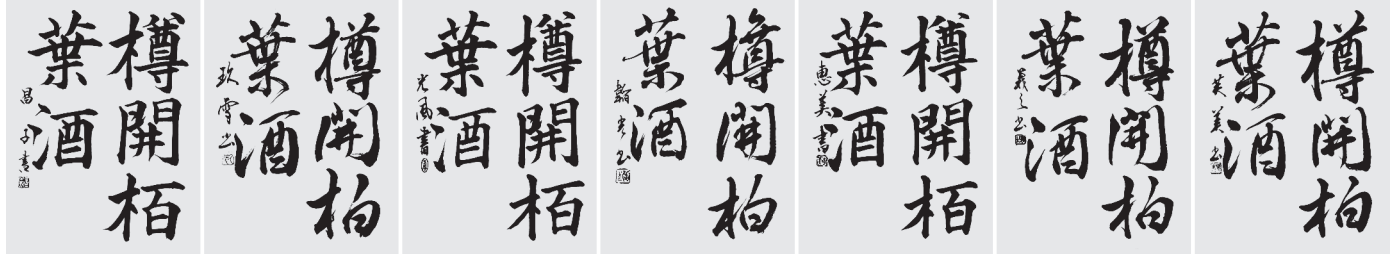 樽開栢
葉酒
昌子書
樽開柏
葉酒
玖雪書
樽開栢
葉酒
光風書
樽開柏
葉酒
樽開栢
葉酒
惠美書
樽開柏
葉酒
樽開柏
葉酒
芙美書